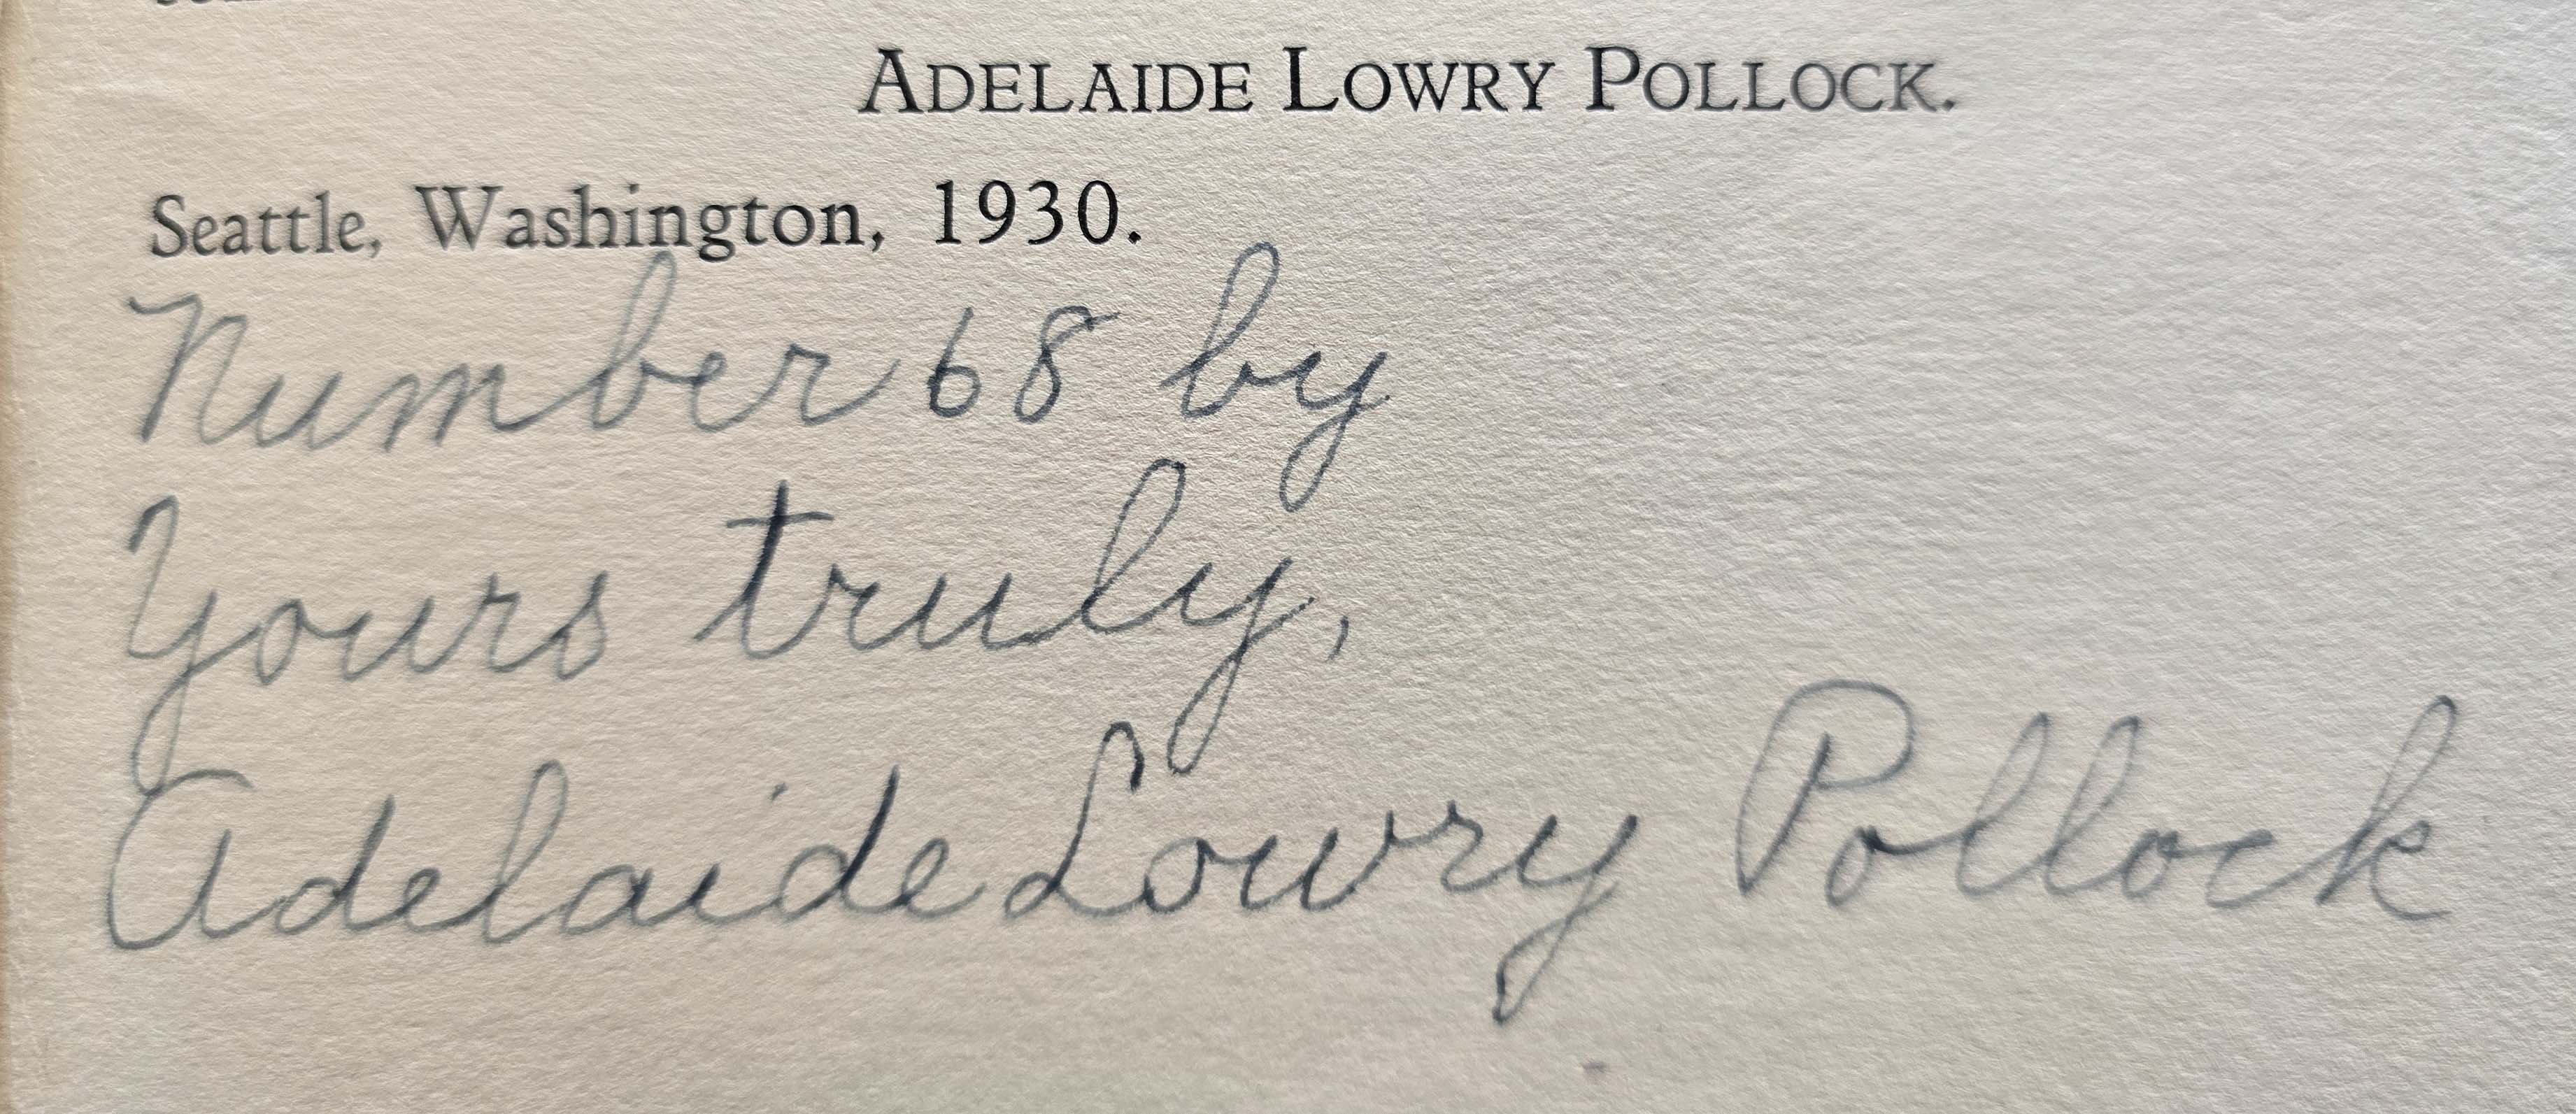 ADELAIDE LOWRY POLLOCK.
Seattle, Washington, 1930.
Number 68 by
Yours truly,
Adelaide Lowry Pollock